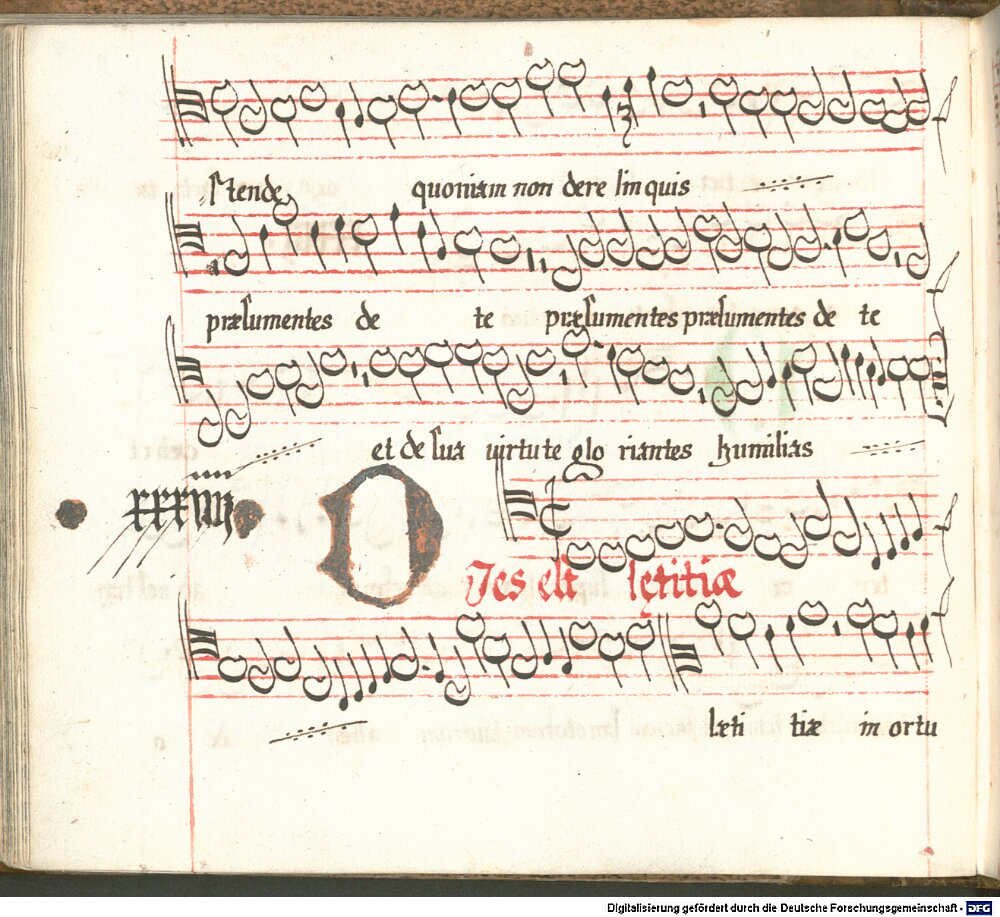 ſtende quoniam non dere linquis
præſumentes de te præſumentes præſumentes de te
et de ſua uirtute glo riantes humilias
xxxiiij
DJes eſt lętitiæ
læti tiæ in ortu
Digitalisierung gefördert durch die Deutsche Forschungsgemeinschaft - DFG